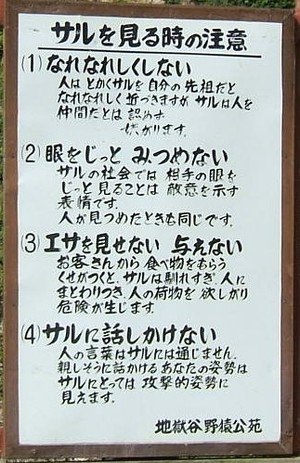 サルを見る時の注意
(1) なれなれしくしない
人は とかくサルを 自分の 先祖だと
なれなれしく 近づきますが サルは人を
仲間だとは 認めず
がります。
(2) 眼をじっと みつめない
サルの社会では 相手の眼を
じっと 見ることは 敵意を示す
表情です。
人が見つめたときも同じです。
(3) エサを見せない 与えない
お客さんから 食べ物をもらう
くせがつくと、サルは馴れすぎ、人に
まとわりつき、人の荷物を 欲しがり
危険が生じます。
(4) サルに話しかけない
人の言葉はサルには通じません。
親しそうに話かける あなたの姿勢は
サルにとっては 攻撃的姿勢に
見えます。
地獄谷野猿公苑